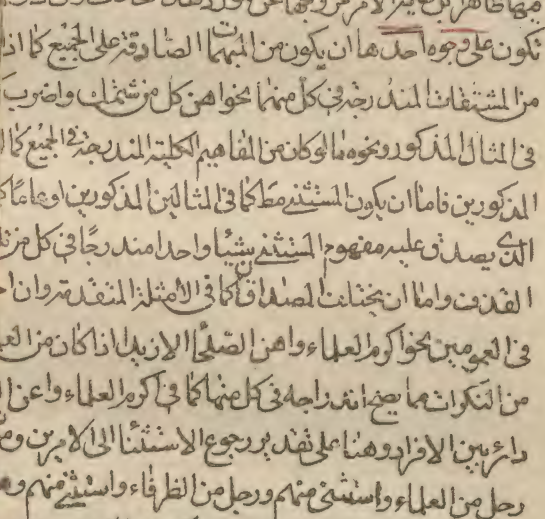 تكون على وجوه احدها ان يكون من المبهمات الصادقة على الجميع كما اذا
من المشتقات المندرجة في كل منهما نحو اهن كل من شتمك واضرب
في المثال المذكور ونحوه ما لو كان من المفاهيم الكلية المندرجة في الجميع كما
المذكورين فاما ان يكون المستثنى مط كما في المثالين المذكورين او عاما
الذي يصدق عليه مفهوم المستثنى شيئا واحدا مندرجا في كل من
القذف واما ان يختلف المصداقان كما في الامثلة المتقدمة وان
في العمومين نحو اكرم العلماء واهن الصلحاء الا زيدا اذا كان من
من النكرات مما يصح اندراجه في كل منهما كما في اكرم العلماء واعن
دائر بين الافراد وهنا على تقدير رجوع الاستثنا الى الامرين
رجل من العلماء واستثنى منهم ورجل من الظرفاء واستثنى منهم